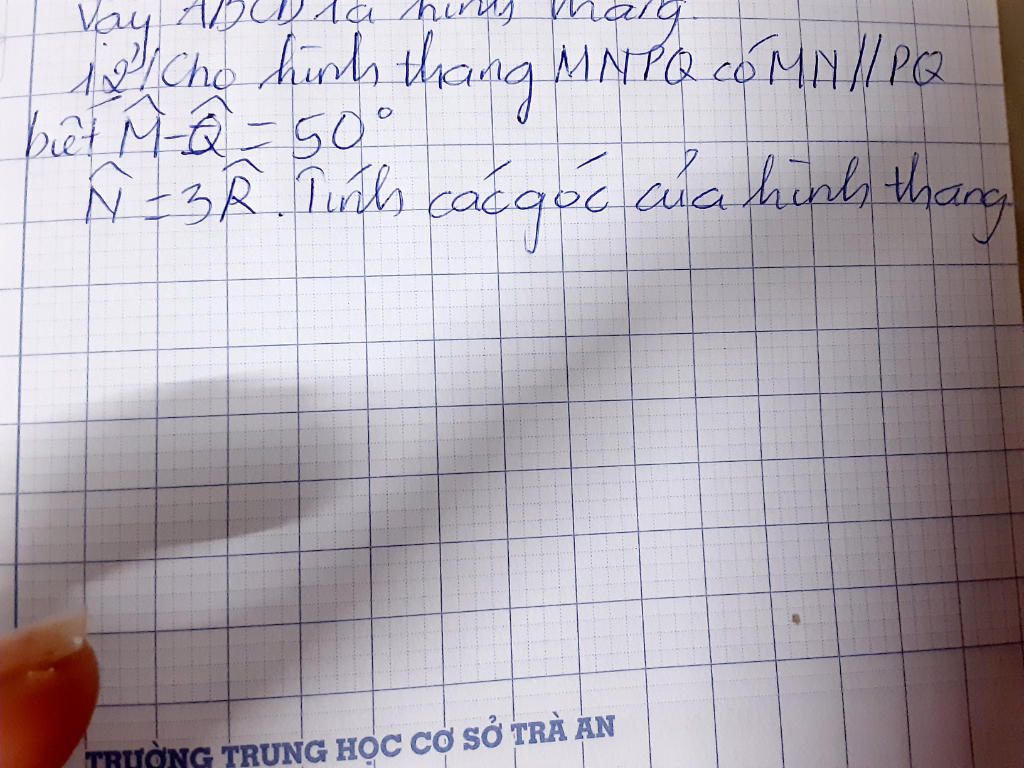 Vậy ABCD là hình thang.
12/ Cho hình thang MNPQ có MN//PQ
biết M̂-Q̂ = 50°
N̂ = 3R̂. Tính các góc của hình thang
TRƯỜNG TRUNG HỌC CƠ SỞ TRÀ AN